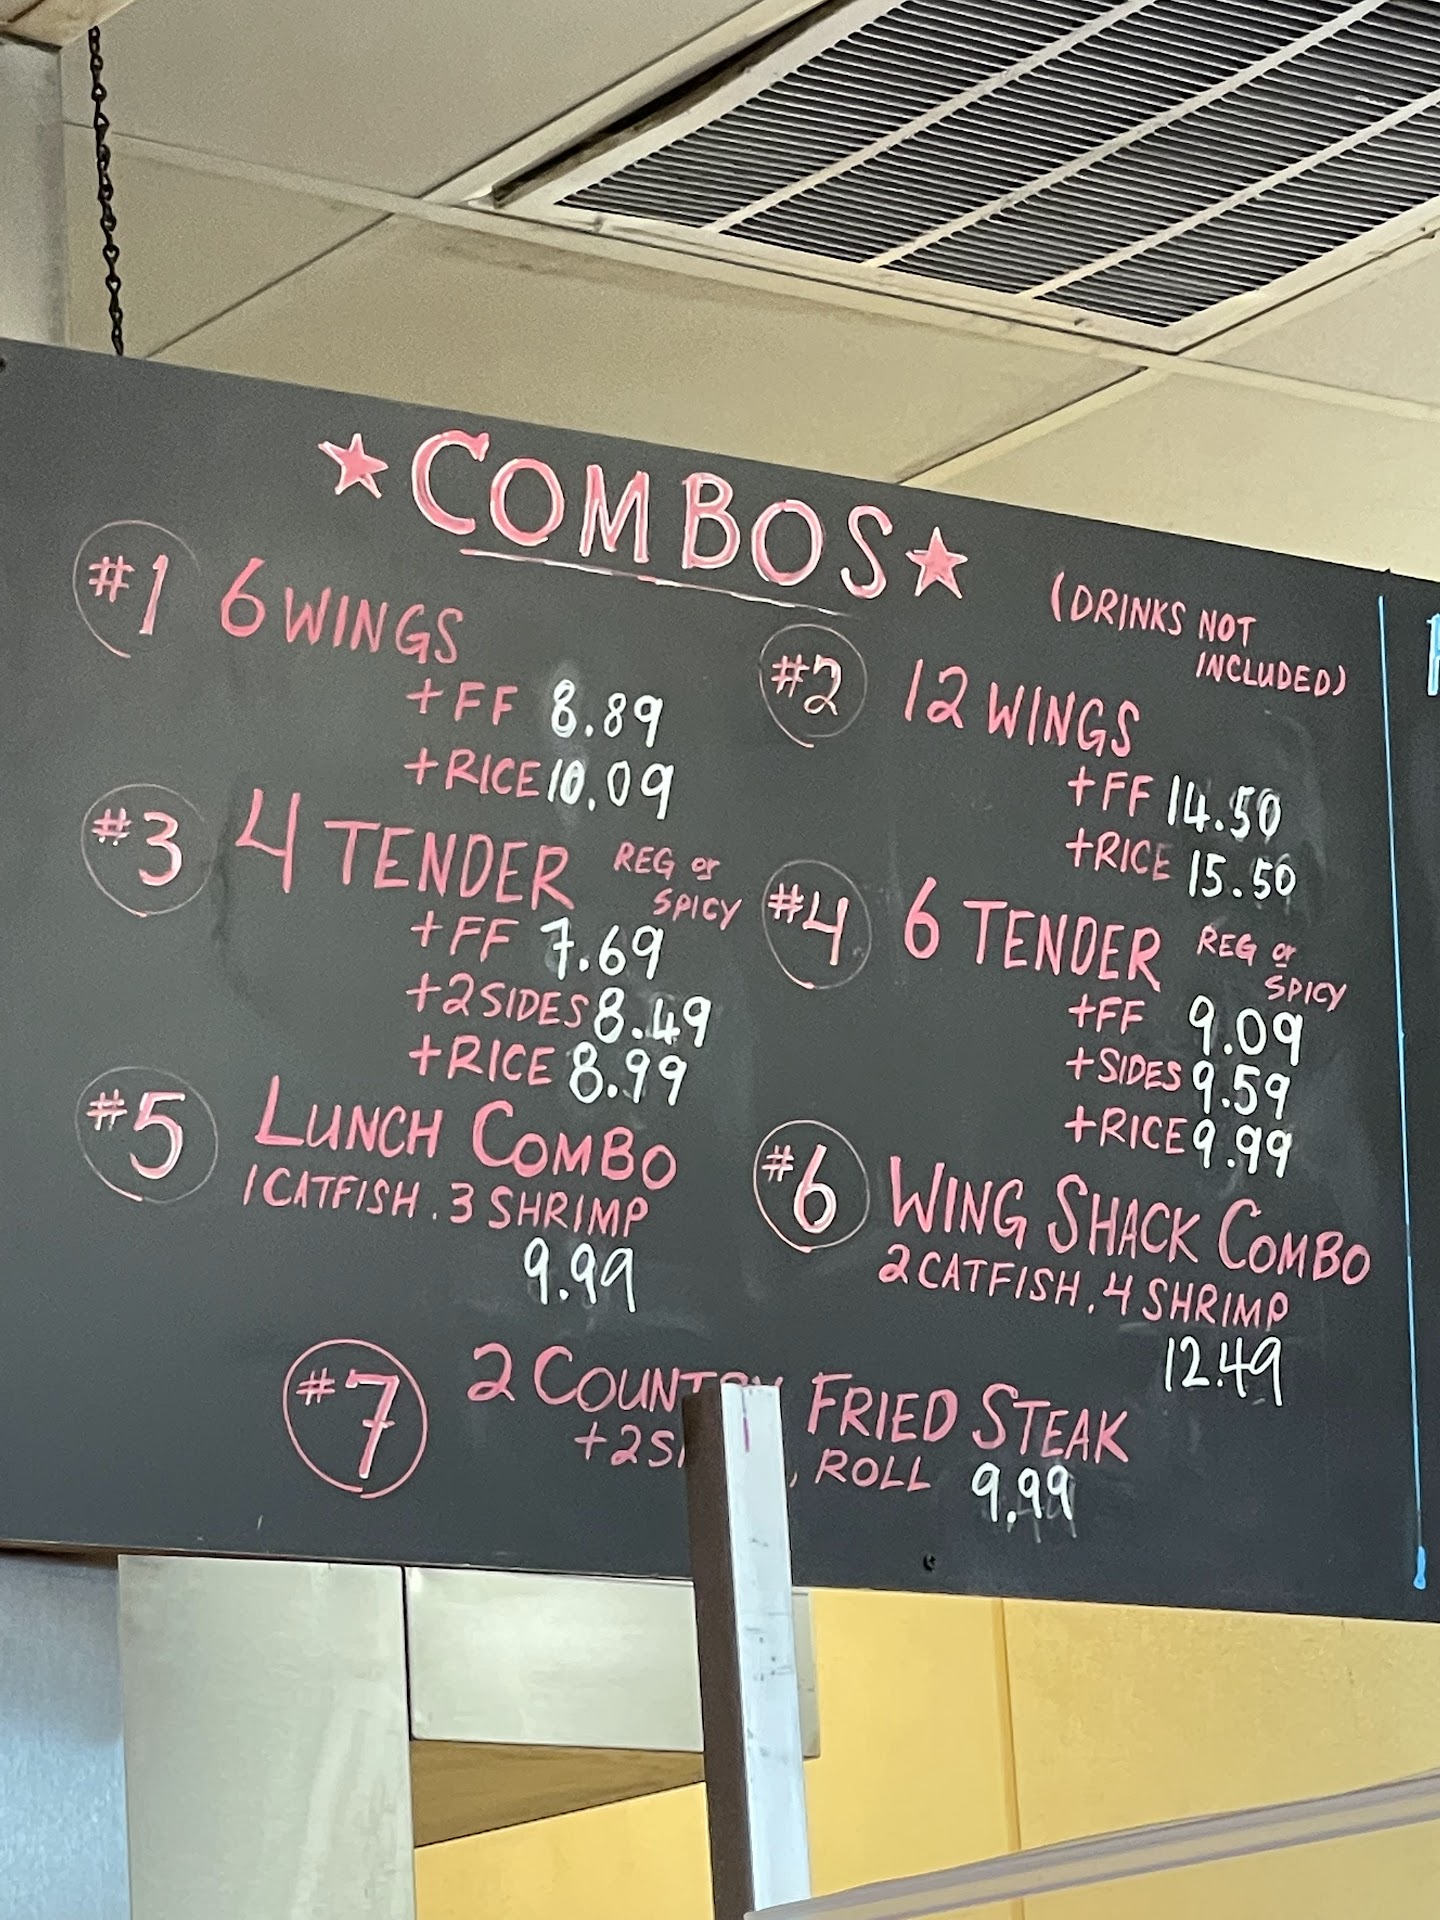 ★COMBOS★
(DRINKS NOT
INCLUDED)
#1 6 WINGS
+FF 8.89
+RICE 10.09
#2 12 WINGS
+FF 14.50
+RICE 15.50
#3 4 TENDER REG or
SPICY
+FF 7.69
+2 SIDES 8.49
+RICE 8.99
#4 6 TENDER REG or
SPICY
+FF 9.09
+SIDES 9.59
+RICE 9.99
#5 LUNCH COMBO
1 CATFISH. 3 SHRIMP
9.99
#6 WING SHACK COMBO
2 CATFISH. 4 SHRIMP
12.49
#7 2 COUNTRY FRIED STEAK
+2 , ROLL 9.99